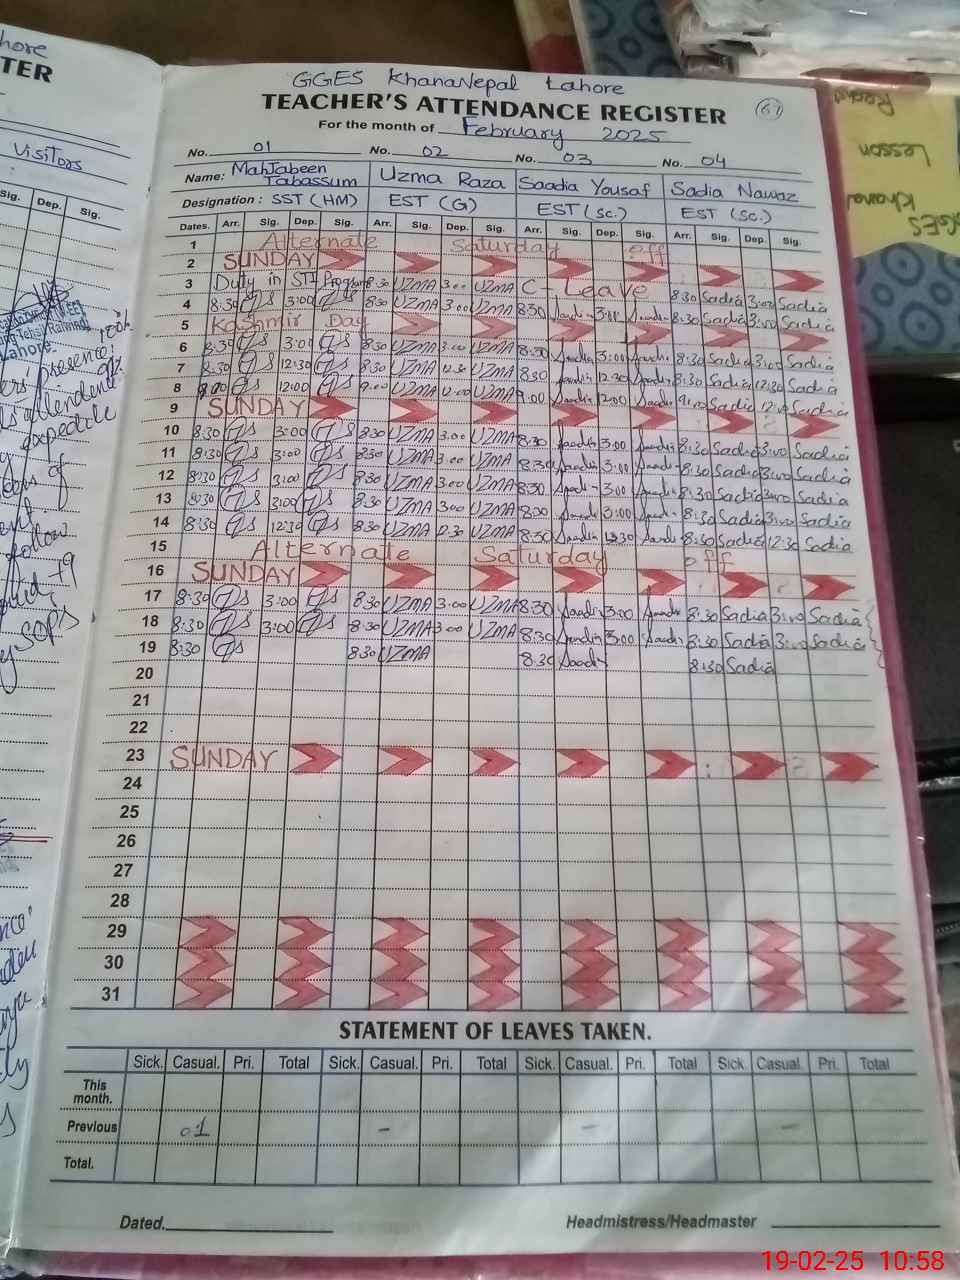 GGES KhanaNepal Lahore
TEACHER'S ATTENDANCE REGISTER
61
For the month of February 2025
No. 01 No. 02 No. 03 No. 04
Name: Mahjabeen Tabassum Uzma Raza Saadia Yousaf Sadia Nawaz
Designation: SST (HM) EST (G) EST (Sc.) EST (Sc.)
Dates. Arr. Sig. Dep. Sig. Arr. Sig. Dep. Sig. Arr. Sig. Dep. Sig. Arr. Sig. Dep. Sig.
1 Alternate Saturday off
2 SUNDAY
3 Duty in Program 8:30 UZMA 3:00 UZMA C-Leave 8:30 Sadia 3:00 Sadia
4 8:30 3:00 8:30 UZMA 3:00 UZMA 8:30 Saadia 3:00 Saadia 8:30 Sadia 3:00 Sadia
5 Kashmir Day
6 8:30 3:00 8:30 UZMA 3:00 UZMA 8:30 Saadia 3:00 Saadia 8:30 Sadia 3:00 Sadia
7 8:30 12:30 8:30 UZMA 12:30 UZMA 8:30 Saadia 12:30 Saadia 8:30 Sadia 12:30 Sadia
8 9:00 12:00 9:00 UZMA 12:00 UZMA 9:00 Saadia 12:00 Saadia 9:00 Sadia 12:00 Sadia
9 SUNDAY
10 8:30 3:00 8:30 UZMA 3:00 UZMA 8:30 Saadia 3:00 Saadia 8:30 Sadia 3:00 Sadia
11 8:30 3:00 8:30 UZMA 3:00 UZMA 8:30 Saadia 3:00 Saadia 8:30 Sadia 3:00 Sadia
12 8:30 3:00 8:30 UZMA 3:00 UZMA 8:30 Saadia 3:00 Saadia 8:30 Sadia 3:00 Sadia
13 8:30 3:00 8:30 UZMA 3:00 UZMA 8:30 Saadia 3:00 Saadia 8:30 Sadia 3:00 Sadia
14 8:30 12:30 8:30 UZMA 12:30 UZMA 8:30 Saadia 12:30 Saadia 8:30 Sadia 12:30 Sadia
15 Alternate Saturday off
16 SUNDAY
17 8:30 3:00 8:30 UZMA 3:00 UZMA 8:30 Saadia 3:00 Saadia 8:30 Sadia 3:00 Sadia
18 8:30 3:00 8:30 UZMA 3:00 UZMA 8:30 Saadia 3:00 Saadia 8:30 Sadia 3:00 Sadia
19 8:30 8:30 UZMA 8:30 Saadia 8:30 Sadia
20
21
22
23 SUNDAY
24
25
26
27
28
29
30
31
STATEMENT OF LEAVES TAKEN.
Sick. Casual. Pri. Total Sick. Casual. Pri. Total Sick. Casual. Pri. Total Sick. Casual. Pri. Total
This month.
Previous 01 - - -
Total.
Dated. Headmistress/Headmaster
hore
TER
Visitors
Sig. Dep. Sig.
Lahore
presence
Lesson
19-02-25 10:58